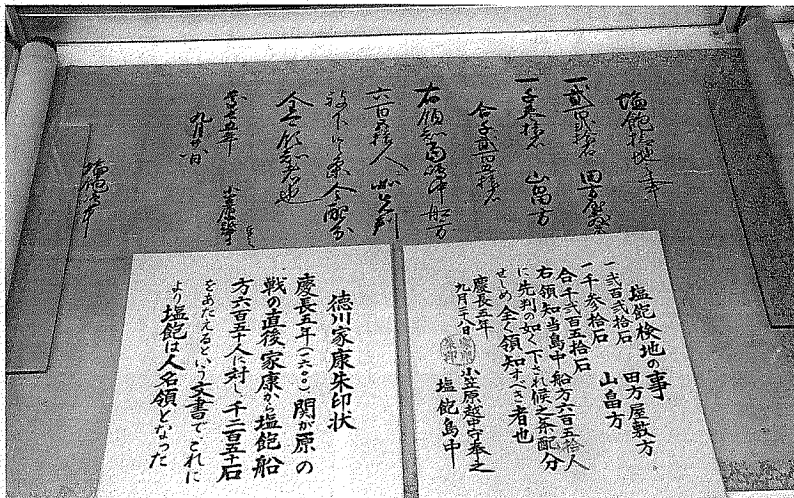 塩飽検地之事
一貳百貳拾石 田方屋敷方
一千参拾石 山畠方
合千貳百五拾石
右領知当島中船方
六百五拾人如先判
被下候之条令配分
全可領知者也
慶長五年 小笠原越中守
九月廿八日
塩飽島中
塩飽検地の事
一弐百弐拾石 田方屋敷方
一千参拾石 山畠方
合千弐百五拾石
右領知当島中船方六百五拾人
に先判の如く下され候之条配分
せしめ全く領知すべき者也
慶長五年 小笠原越中守奉之
九月二十八日 家康朱印
塩飽島中
徳川家康朱印状
慶長五年(一六〇〇)関が原の
戦の直後家康から塩飽船
方六百五十人に対し、千二百五十石
をあたえるという文書でこれに
より塩飽は人名領となった